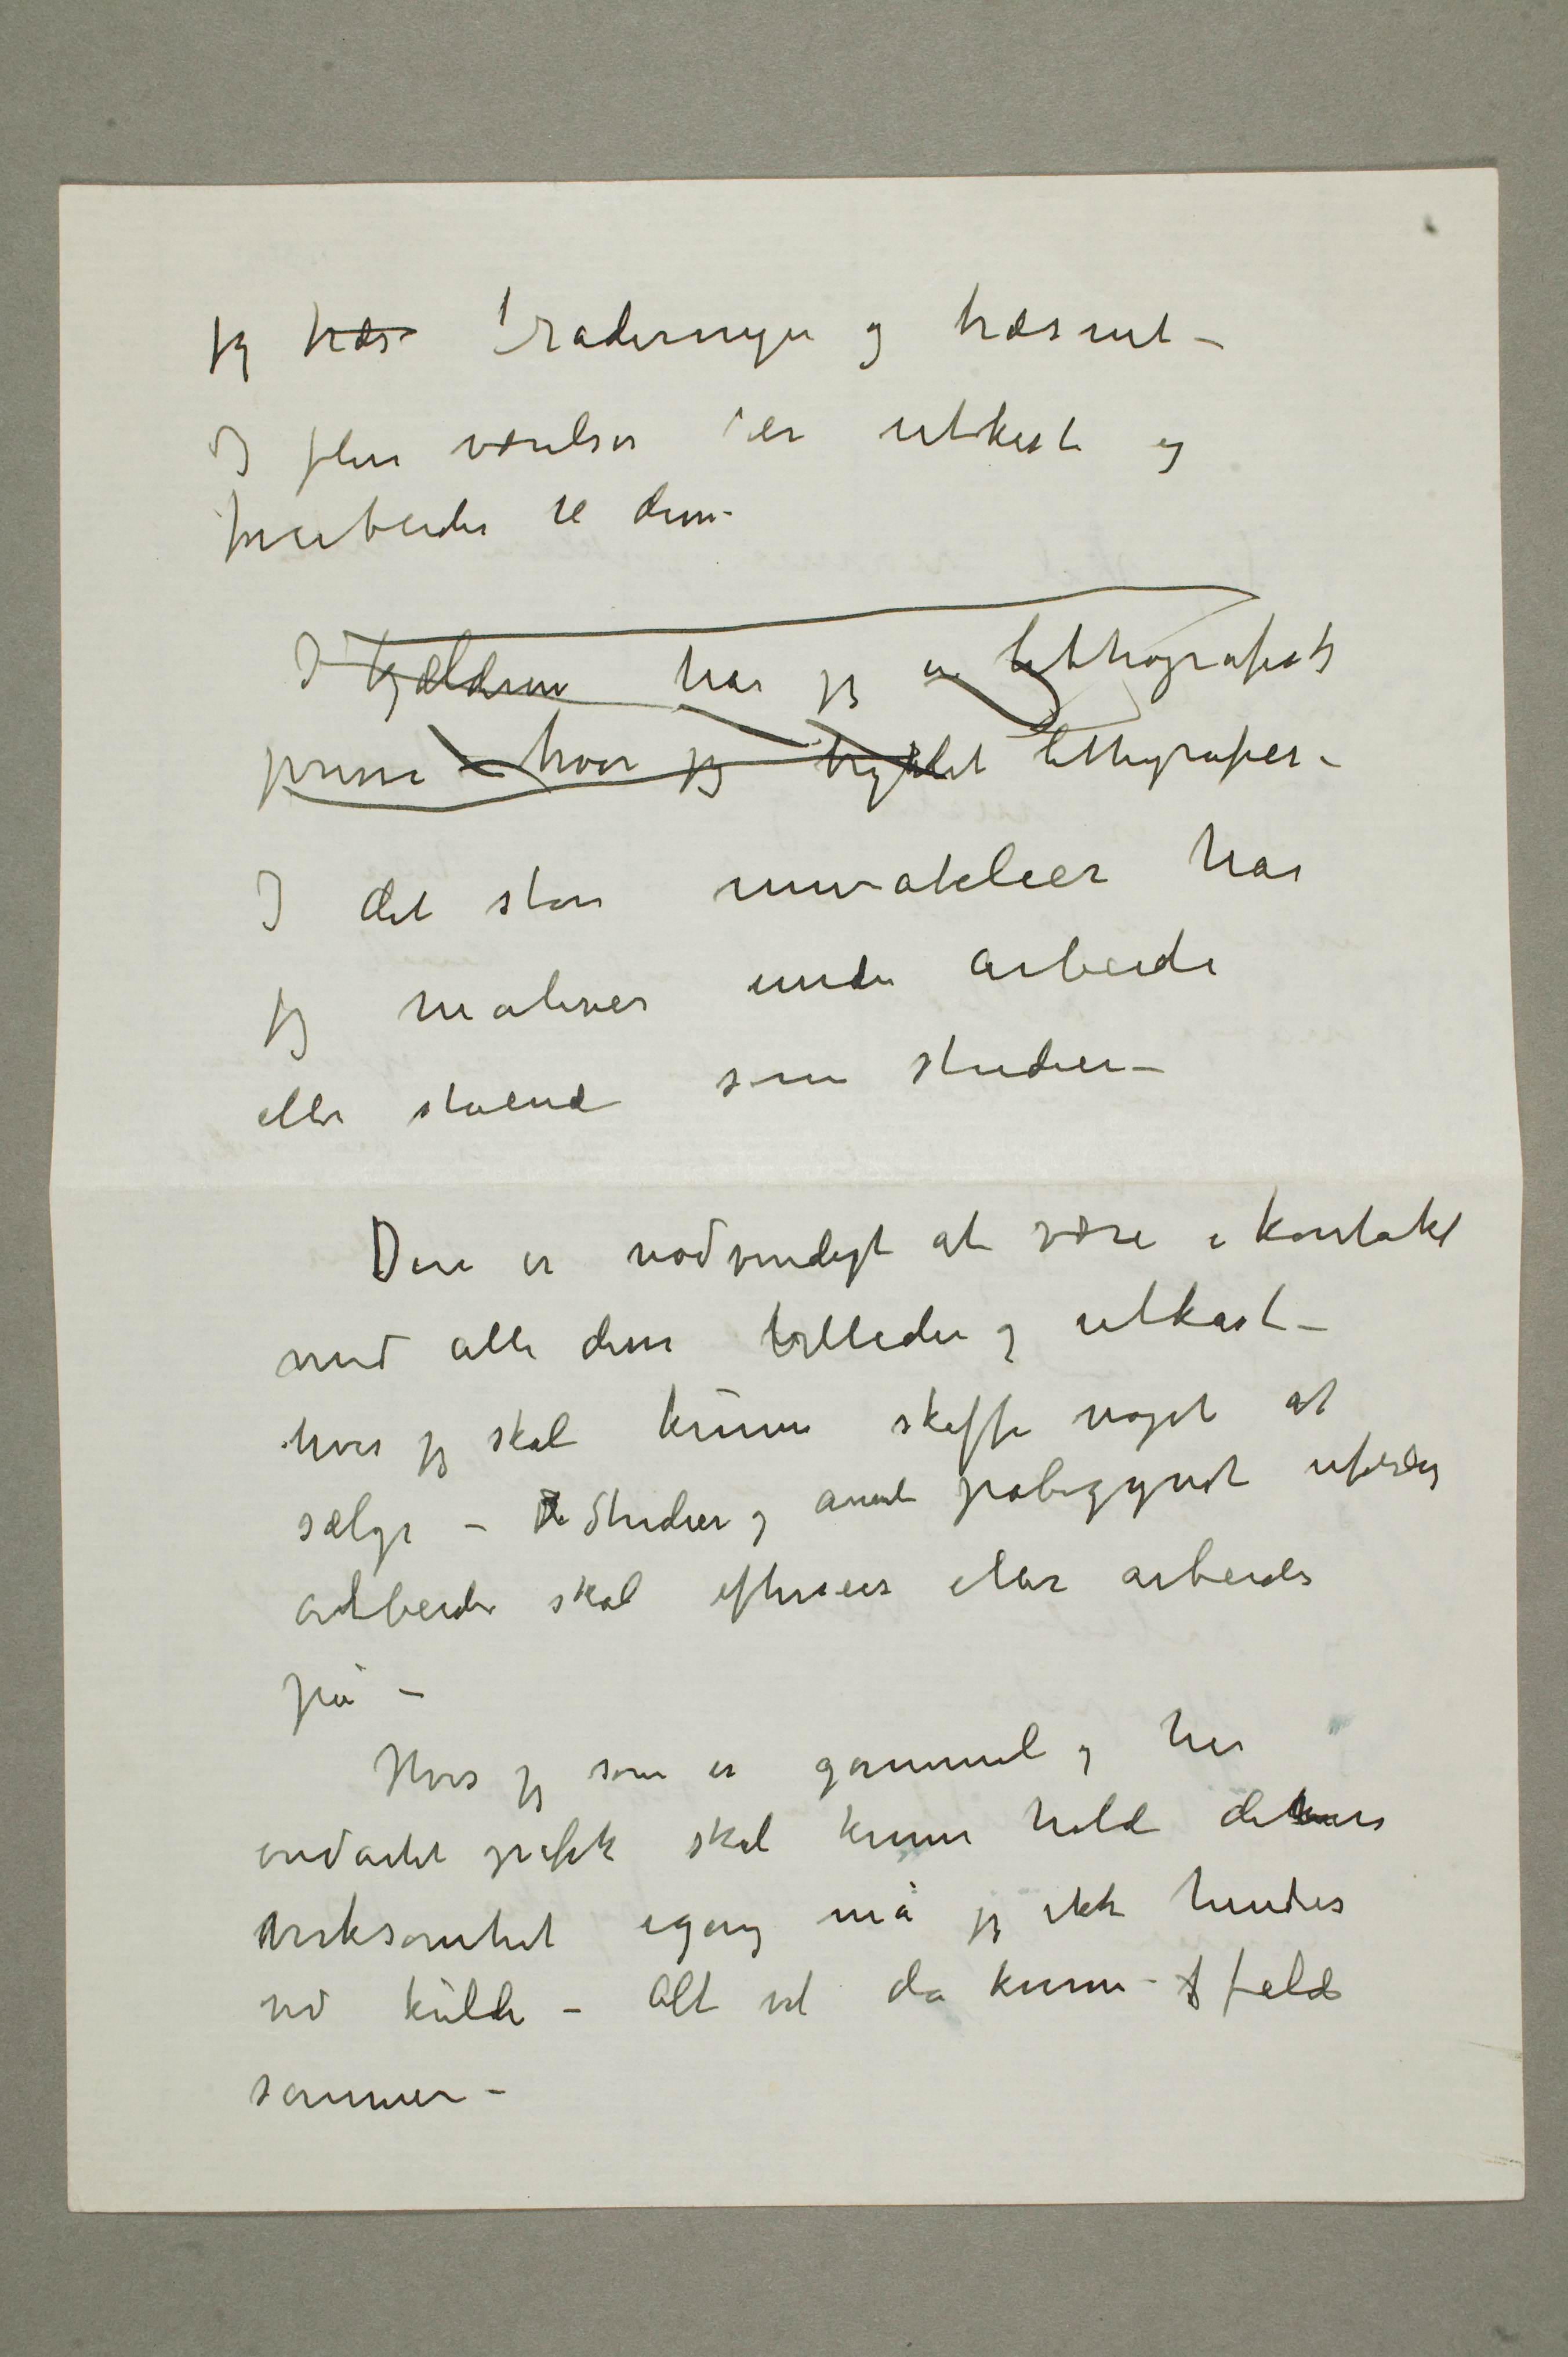 jeg træs raderinger og træsnit –
I flere værelser er utkast og
forarbeider til dem –
I kjælderen har jeg en litthografisk
presse – hvor jeg trykket litthografier –
I det store murateleer har
jeg malerier under arbeide
eller stående som studier –
Den er nødvendigt at være i kontakt
med alle disse billeder og utkast –
hvis jeg skal kunne skaffe noget at
sælge – Studier og annet påbegyndt uferdig
arbeide skal eftersees eller arbeides
på –
Hvis jeg som er gammel og har
skal kunne holde denne
virksomhet igang må jeg ikke hindres
ved kulde – Alt vil da kunne falde
sammen –